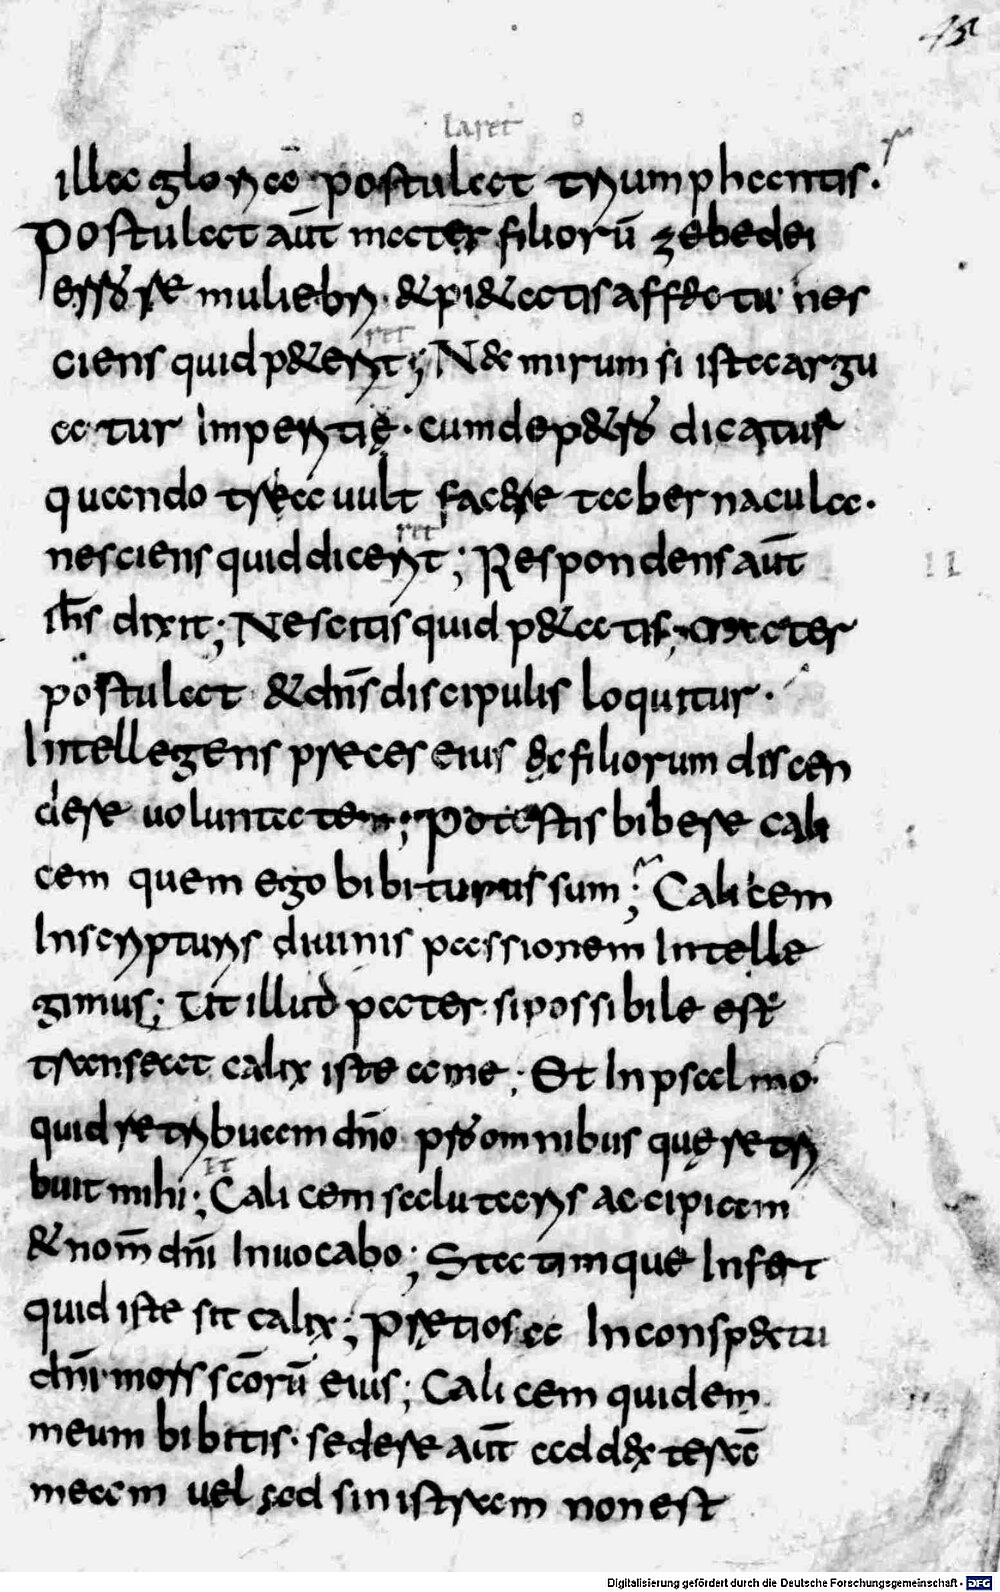 45
laret
illa gloriā postulat triumphantis.
Postulat aūt mater filiorū zebedei
errore muliebri. & pi&atis affectu nes
ciens quid p&erit; Nec mirum si ista argu
atur Imperitię. cum de p&ro dicatur
quando tria uult facere tabernacula.
ret
nesciens quid dicerit; Respondens aūt
ih̄s dixit; Nescitis quid p&atis; Mater
postulat & dn̄s discipulis loquitur.
Intellegens preces eius ęc filiorum discen
dere uoluntatem; Potestis bibere cali
cem quem ego bibiturus sum; Calicem
In scripturis diuinis passionem Intelle
gimus; Ut illud pater si possibile est
transeat calix iste a me; Et In psalmo
quid retribuam dn̄o pro omnibus quę retri
buit mihi; Calicem salutaris accipiam
& nom̄ dn̄i Inuocabo; Statimque Infert
quid iste sit calix; Prętiosa In conspectu
dn̄i mors sc̄orū eius; Calicem quidem
meum bibitis. sedere aūt ad dexterā
meam uel ad sinistram non est
11
Digitalisierung gefördert durch die Deutsche Forschungsgemeinschaft - DFG